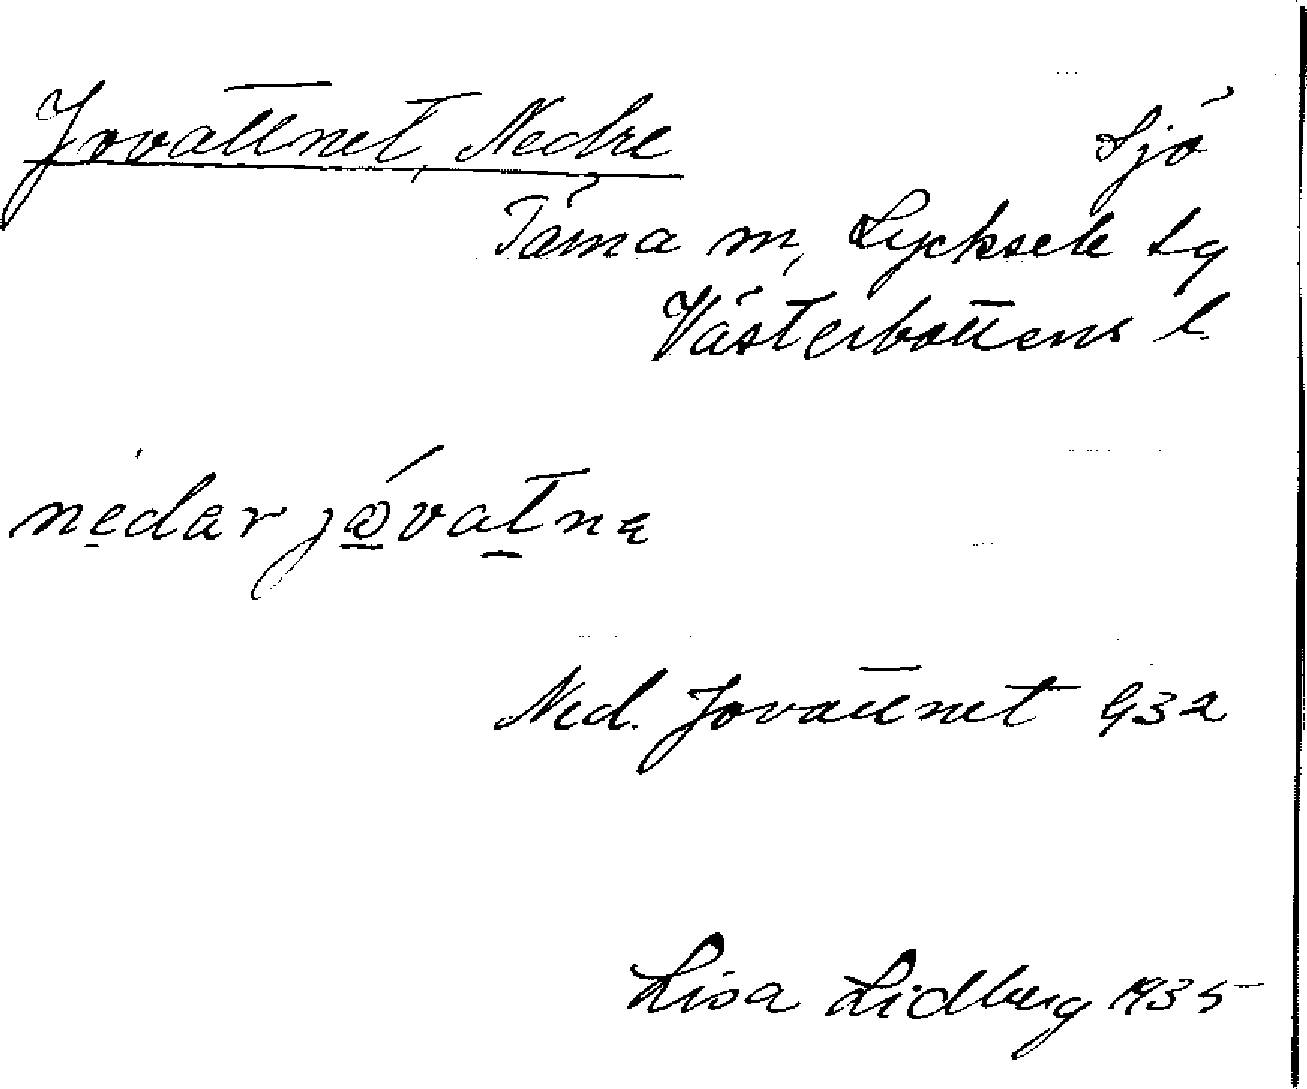 Jovattnet, Nedre Sjö
Tärna sn, Lycksele lg
Västerbottens l.
Ned. Jovattnet 932
Lisa Lidberg 1935